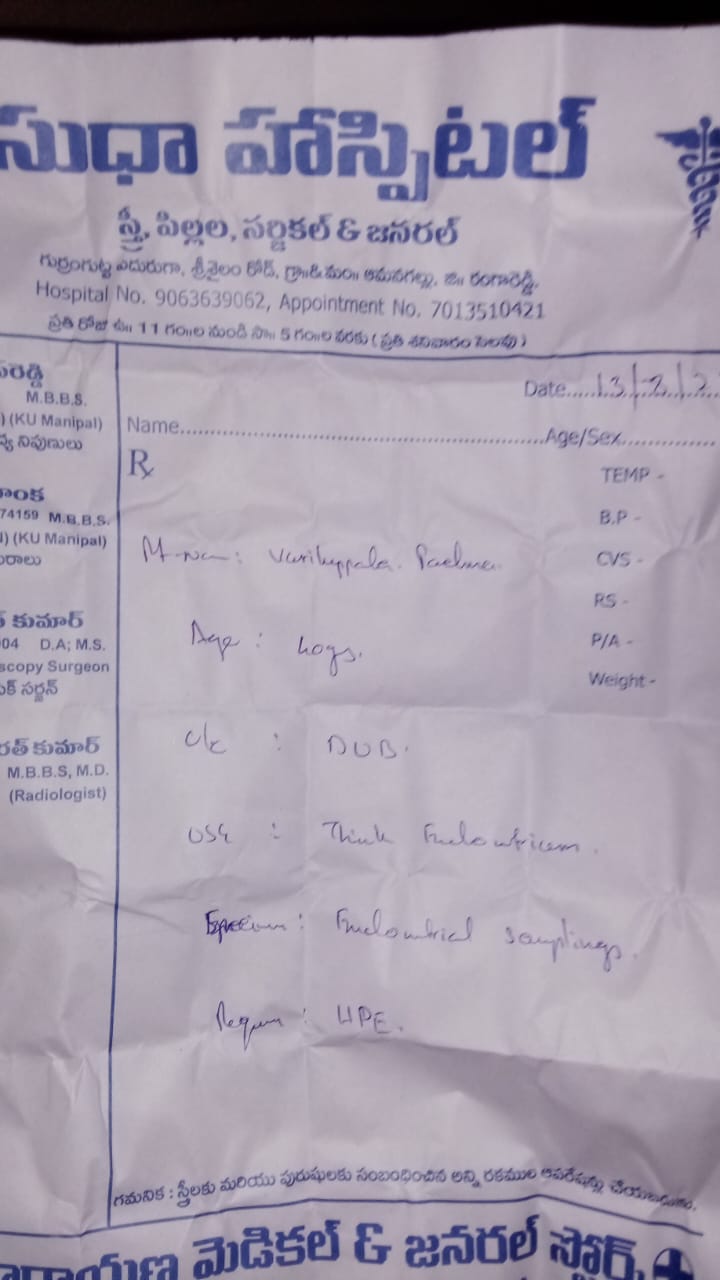 సుధా హాస్పిటల్
స్త్రీ, పిల్లల, సర్జికల్ & జనరల్
గుర్రంగుట్ట ఎదురుగా, శ్రీశైలం రోడ్, గ్రా॥& మం॥ ఆమనగల్లు, జి॥ రంగారెడ్డి.
Hospital No. 9063639062, Appointment No. 7013510421
ప్రతి రోజు ఉ॥ 11 గం॥ల నుండి సా॥ 5 గం॥ల వరకు ( ప్రతి శనివారం సెలవు )
రెడ్డి
M.B.B.S.
) (KU Manipal)
నిపుణులు
74159 M.B.B.S.
) (KU Manipal)
కుమార్
04 D.A; M.S.
scopy Surgeon
సర్జన్
కుమార్
M.B.B.S, M.D.
(Radiologist)
Date.....13/2/2
Name..........Age/Sex..........
Rx
TEMP -
B.P -
CVS -
RS -
P/A -
Weight -
Age :
C/c : DUB.
USG : Think Endometrium.
: Endometrial samplings.
: HPE.
గమనిక : స్త్రీలకు మరియు పురుషులకు సంబంధించిన అన్ని రకముల ఆపరేషన్లు చేయబడును.
మెడికల్ & జనరల్ స్టోర్స్